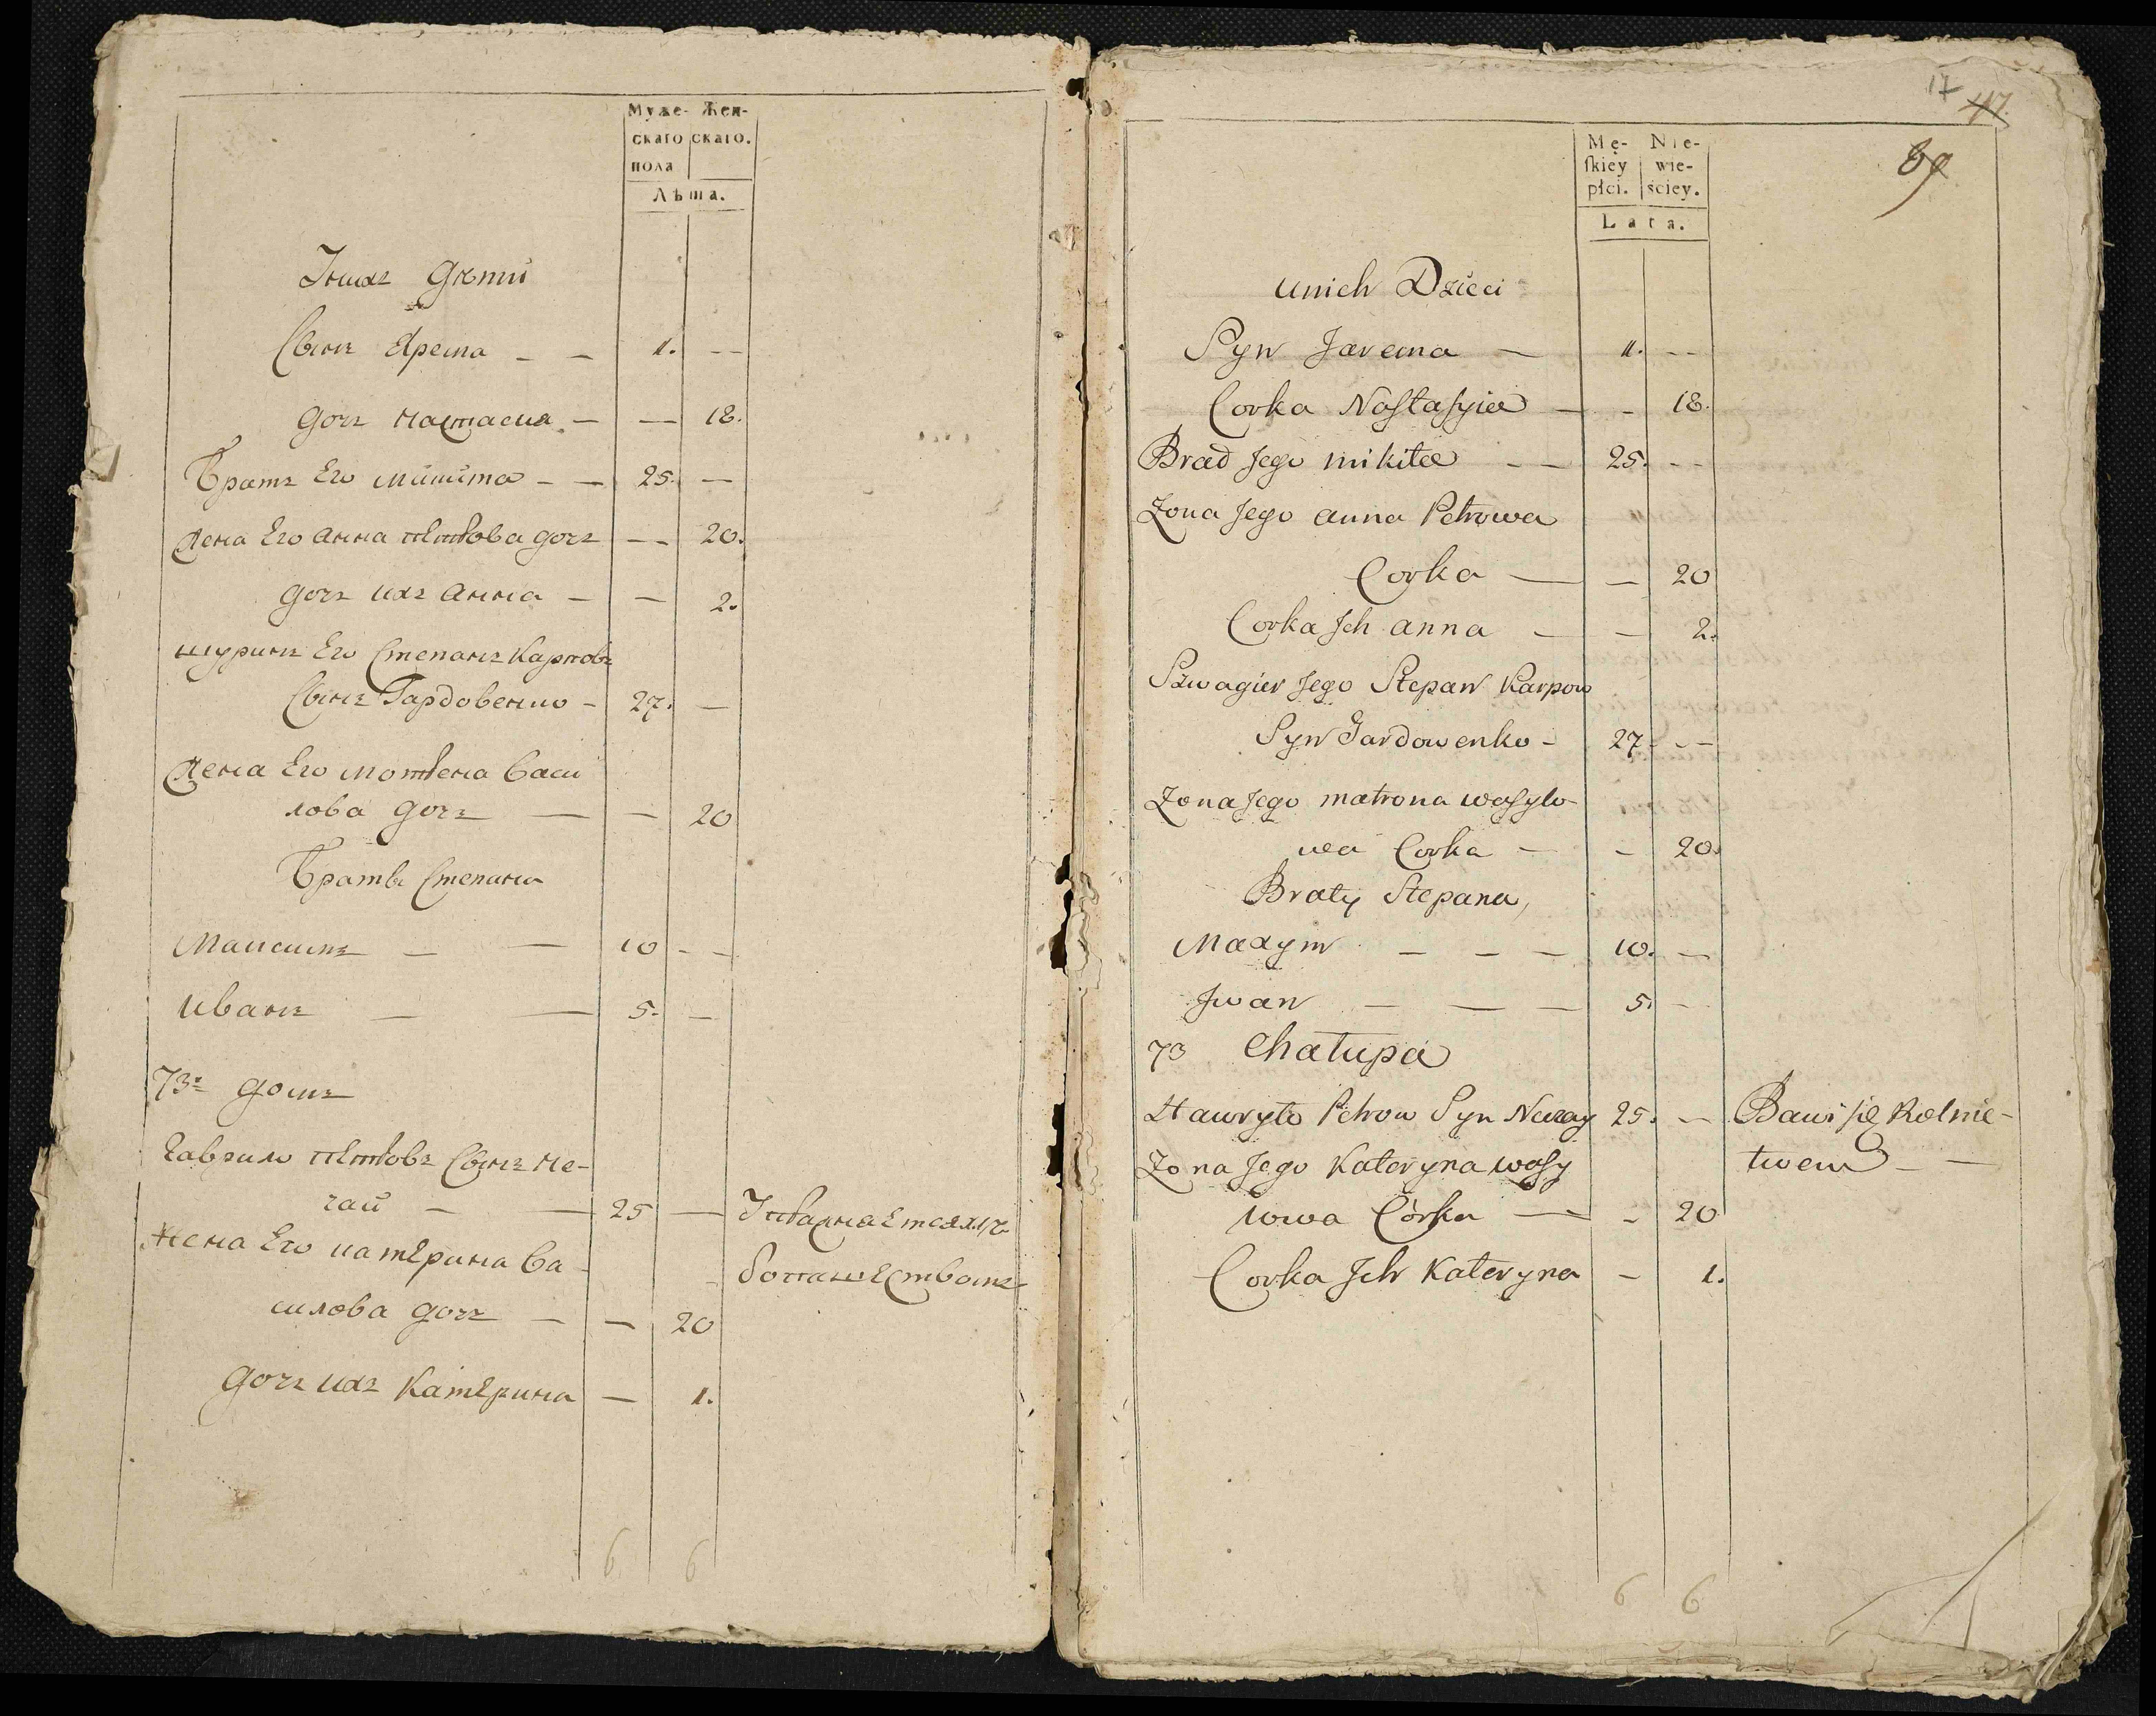 Муже- Жен-
скаго скаго.
пола
Лѣта.
У нихъ дѣти
Сынъ Ярема — — 1. — —
дочь настасия — — 18.
Братъ Его микита — — 25. —
жена Его анна петрова дочь — — 20.
дочь ихъ анна — — 2.
шуринъ Его Степанъ Карповъ
Сынъ Гардовенко — 27. —
жена Его мотрена Васи
лова дочь — — 20
Браты Степана
Максимъ — — 10 — —
иванъ — — 5. —
73й домъ
Гаврило петровъ Сынъ не-
чай — — 25 —
жена Его катерина Ва-
силова дочь — — 20
дочь ихъ Катерина — — 1.
6 6
17 47.
89
Mę- Nie-
ſkiey wie-
płci. ściey.
Lata.
unich Dzieci
Syn Jarema — 1. — —
Corka Nastasyia — — 18.
Brad Jego mikita — — 25. — —
Zona Jego anna Petrowa
Corka — — 20
Corka Jch anna — — 2.
Szwagier Jego Stepan Karpow
Syn Gardowenko — 27 — —
Zona Jego matrona wasylo-
wa Corka — — 20.
Braty Stepana,
Maxym — — — 10. —
Jwan — — — 5. —
73 Chałupa
Hawryło Petrow Syn Neczay 25. — Bawi się Rolnic-
Zona Jego Kateryna wasy twem — —
lowa Córka — — 20
Corka Jch Kateryna — 1.
6 6